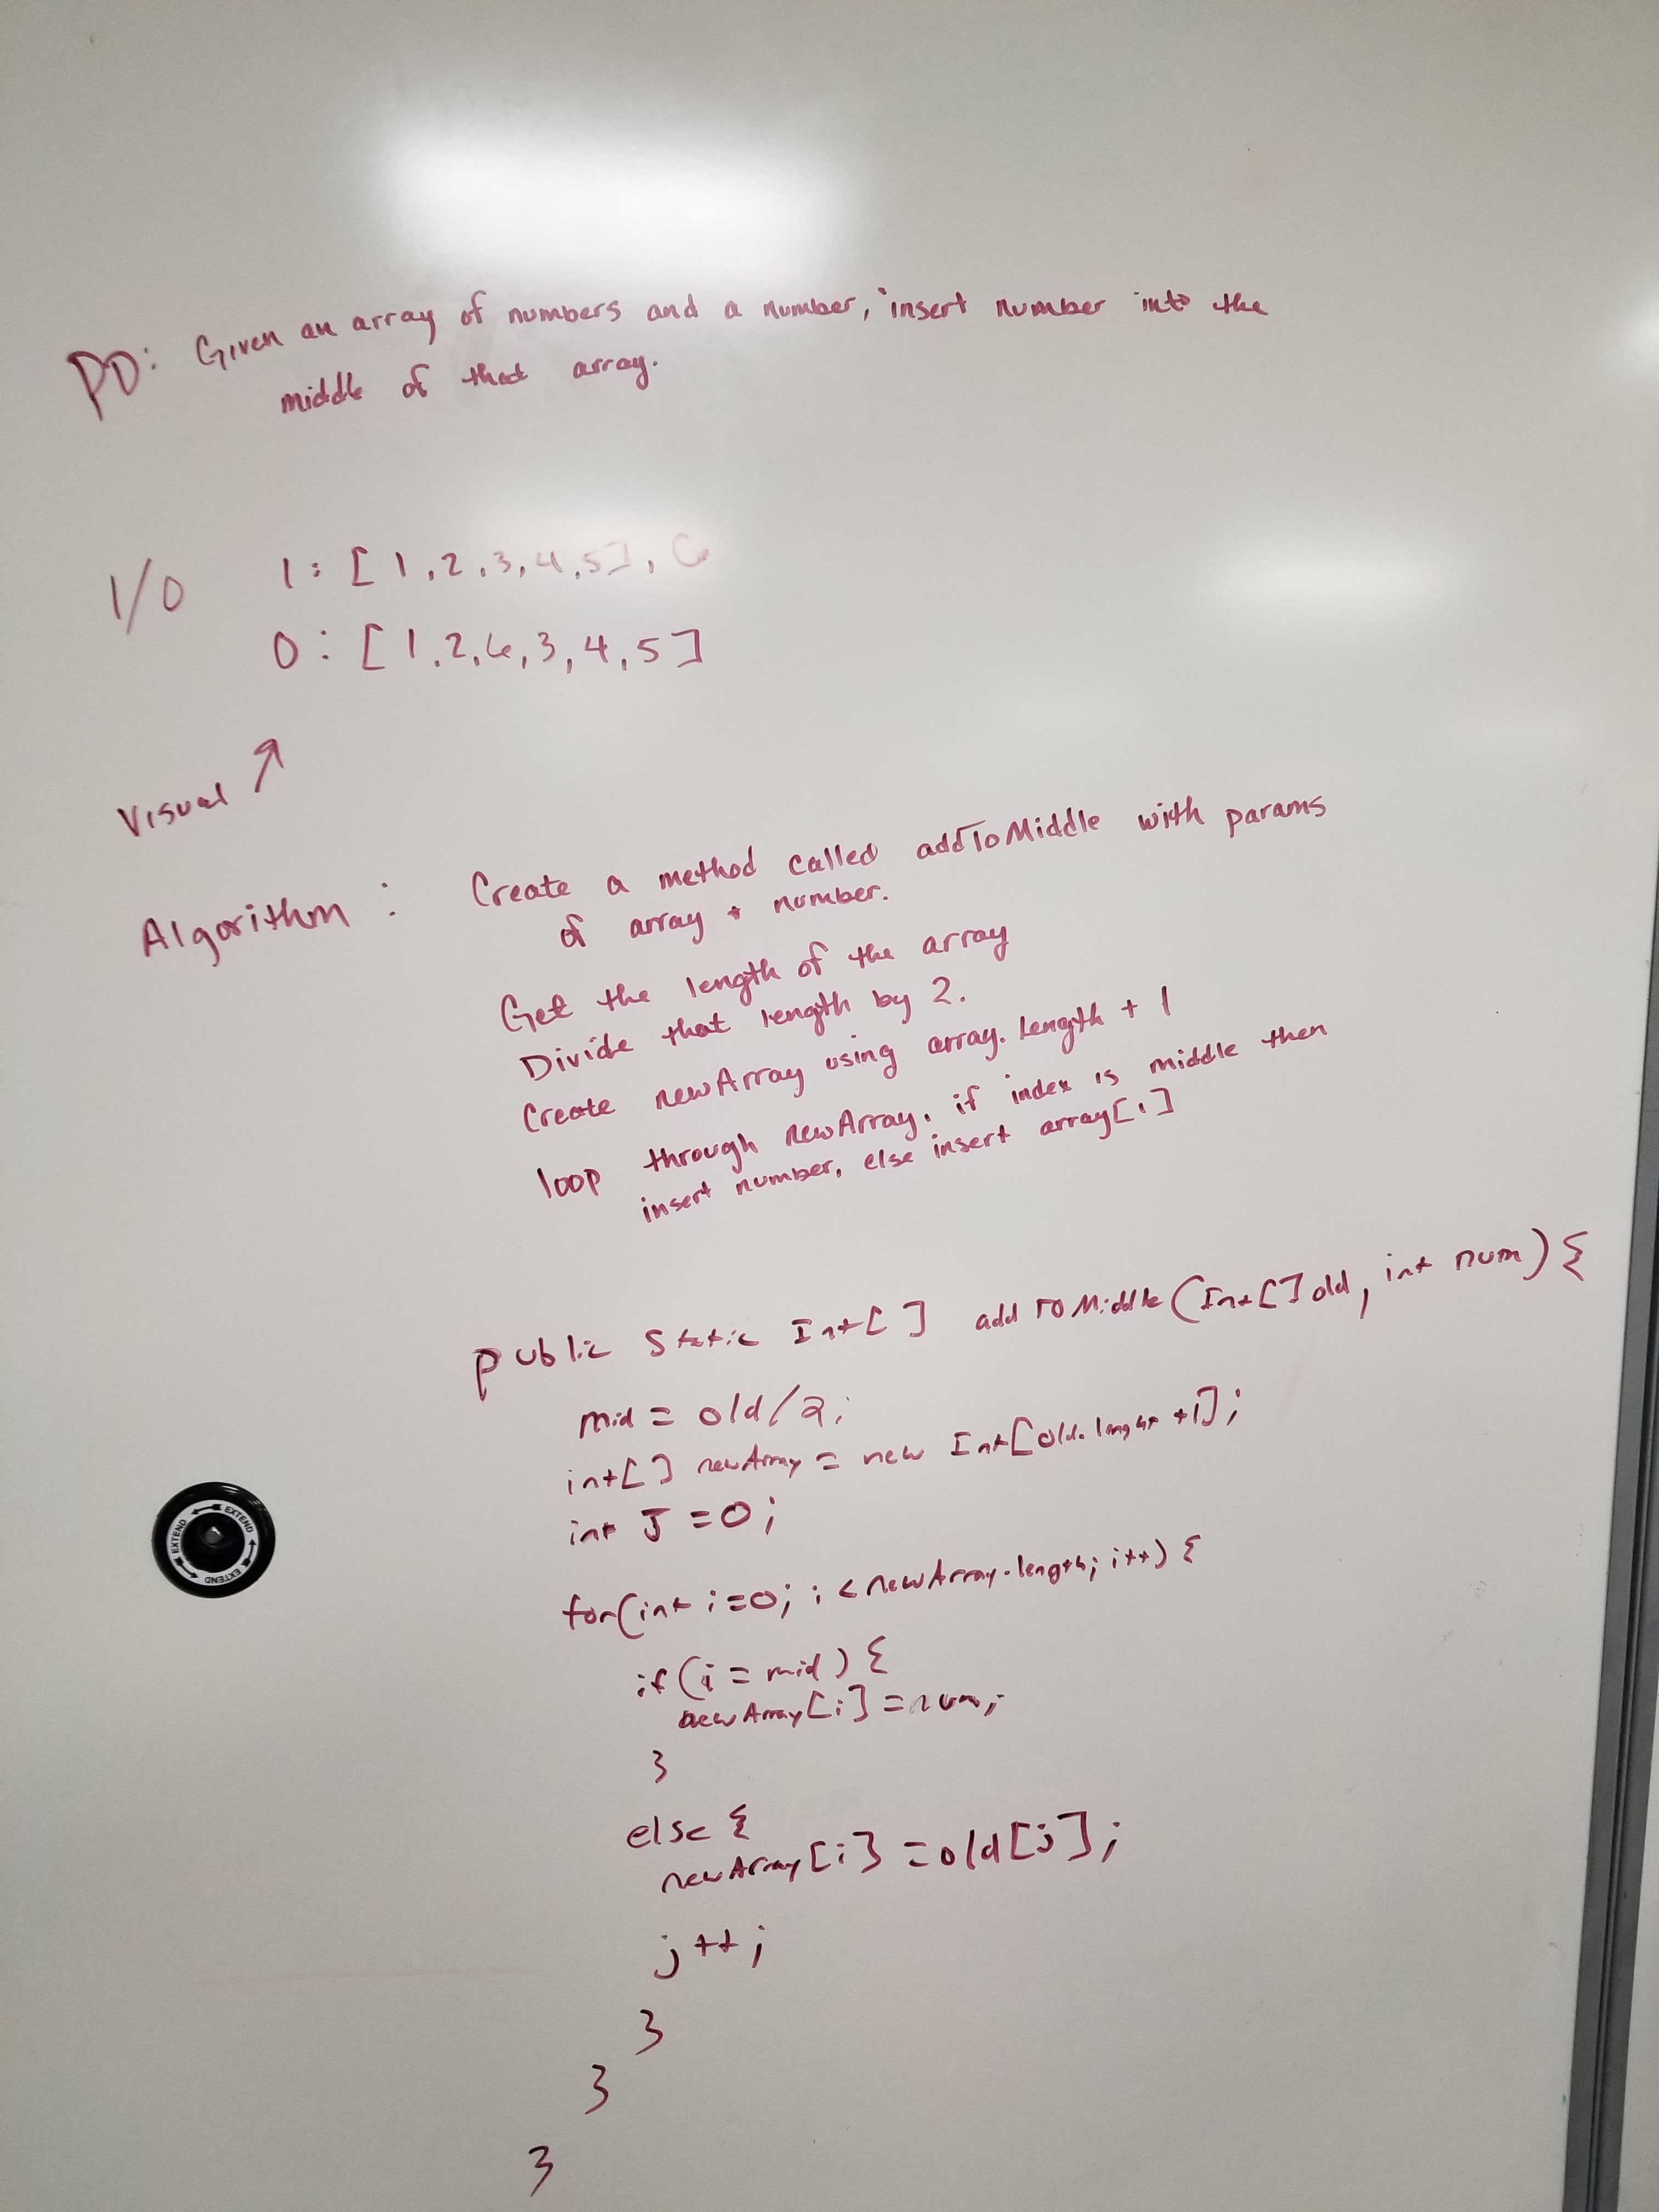 PD: Given an array of numbers and a number, insert number into the
middle of that array.
I/O
I: [1,2,3,4,5], 6
O: [1,2,6,3,4,5]
Visual ↗
Algorithm: Create a method called addToMiddle with params
of array + number.
Get the length of the array
Divide that length by 2.
Create newArray using array.length + 1
loop through newArray, if index is middle then
insert number, else insert array[i]
public static Int[] addToMiddle(Int[] old, int num) {
mid = old/2;
int[] newArray = new Int[old.length +1];
int J = 0;
for(int i=0; i < newArray.length; i++) {
if (i = mid) {
newArray[i] = num;
}
else {
newArray[i] = old[j];
j++;
}
}
}
EXTEND EXTEND EXTEND